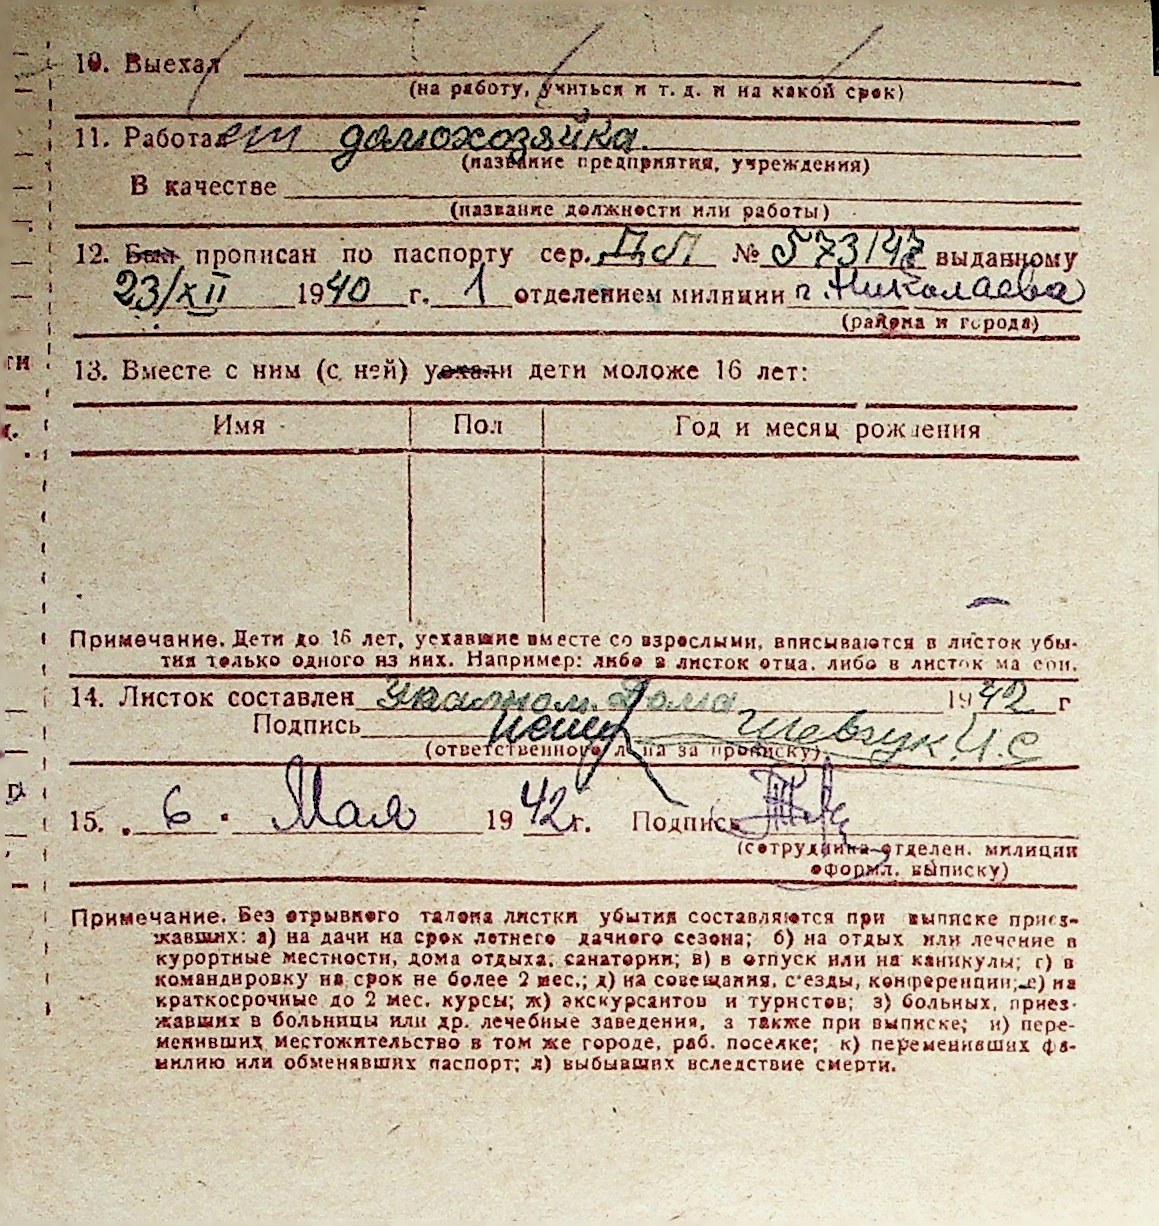 10. Выехал
(на работу, учиться и т. д. и на какой срок)
11. Работает домохозяйка.
(название предприятия, учреждения)
В качестве
(название должности или работы)
12. Был прописан по паспорту сер. ДЛ № 573147 выданному
23/XII 1940 г. 1 отделением милиции г. Николаева
(района и города)
13. Вместе с ним (с ней) уехали дети моложе 16 лет:
Имя Пол Год и месяц рождения
Примечание. Дети до 16 лет, уехавшие вместе со взрослыми, вписываются в листок убы-
тия только одного из них. Например: либо в листок отца, либо в листок ма ери.
14. Листок составлен Дома 1942 г
Подпись Шевчук И. С
(ответственного лица за прописку)
15. 6. Мая 1942 г. Подпись
(сотрудника отделен. милиции
оформл. выписку)
Примечание. Без отрывного талона листки убытия составляются при выписке приез-
жавших: а) на дачи на срок летнего дачного сезона; б) на отдых или лечение в
курортные местности, дома отдыха, санатории; в) в отпуск или на каникулы; г) в
командировку на срок не более 2 мес.; д) на совещания, с'езды, конференции; е) на
краткосрочные до 2 мес. курсы; ж) экскурсантов и туристов; з) больных, приез-
жавших в больницы или др. лечебные заведения, а также при выписке; и) пере-
менивших местожительство в том же городе, раб. поселке; к) переменивших фа-
милию или обменявших паспорт; л) выбывших вследствие смерти.